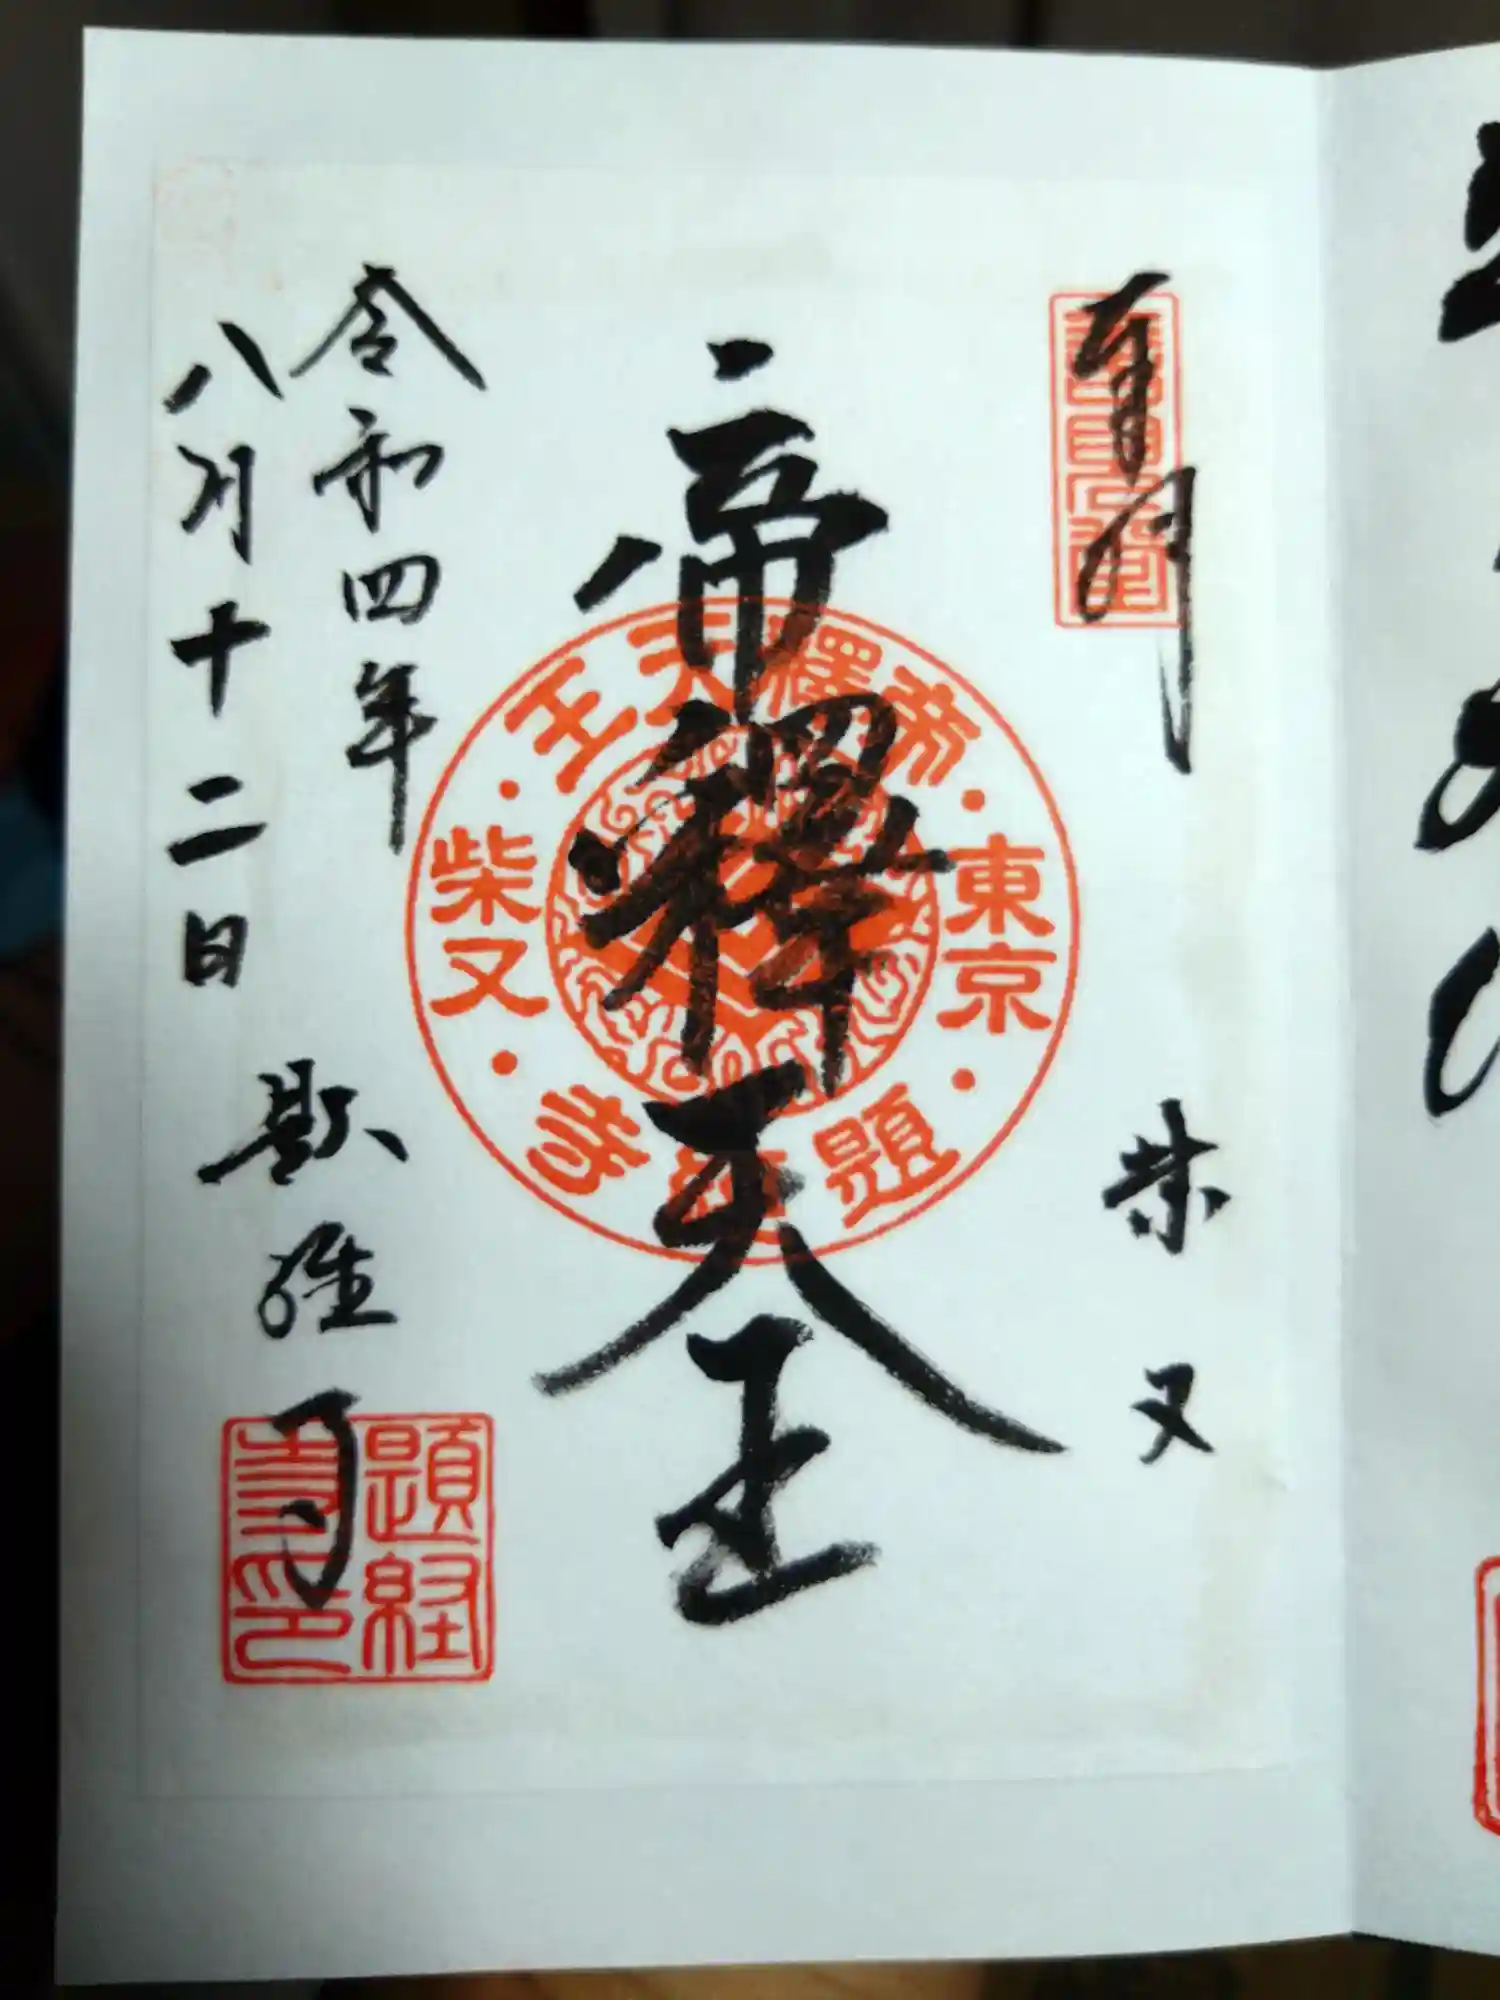 奉拝
柴又
帝釋天王
東京
帝釋天王
柴又
題経寺
令和四年
八月十二日
題経寺
題経
寺印